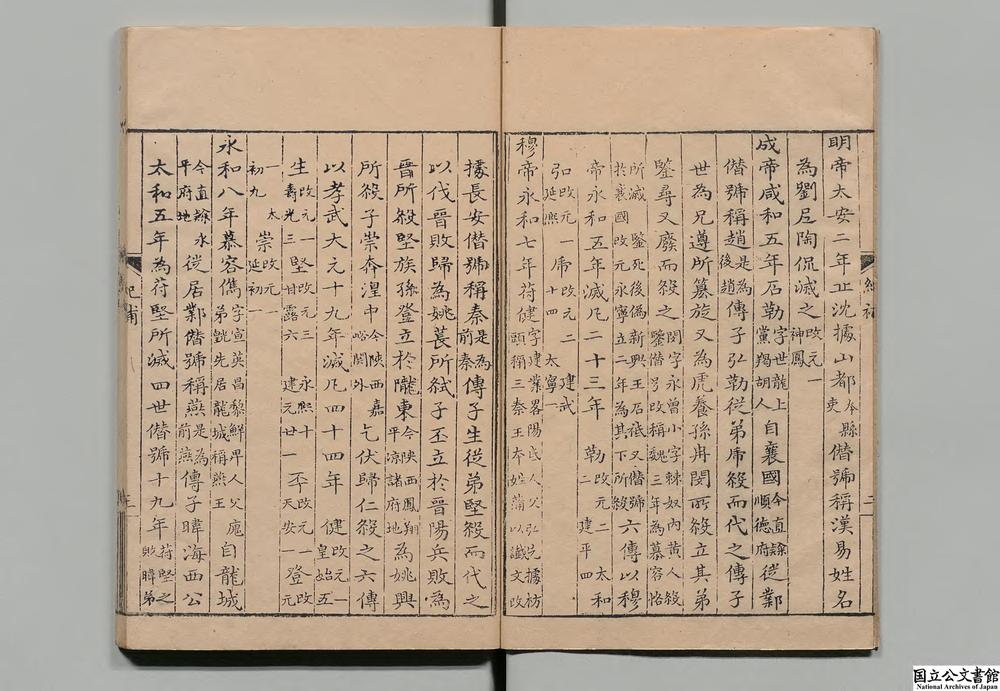 明帝太安二年丘沈據山都今縣吏僭號稱漢易姓名
為劉尼陶侃滅之改元一神鳳
成帝咸和五年石勒字世龍上黨羯胡人自襄國今直隸順德府從鄴
僭號稱趙是為後趙傳子弘勒從弟虎殺而代之傳子
世為兄遵所簒旋又為虎養孫冉閔所殺立其弟
鑒尋又廢而殺之閔字永曾小字棘奴內黃人殺鑒僭號改稱魏三年為慕容恪
所滅鑒死後偽新興王石祗又僭號於襄國改元永寧立二年為其下所殺六傳以穆
帝永和五年滅凡二十三年勒改元二太和二建平四
弘改元一延熙虎改元二建武十四太寧一
穆帝永和七年苻健字建業畧陽氐人父弘先據枋頭稱三秦王本姓蒲以讖文改
據長安僭號稱秦是為前秦傳子生從弟堅殺而代之
以伐晉敗歸為姚萇所弒子丕立於晉陽兵敗為
晉所殺堅族孫登立於隴東今陝西鳳翔平凉諸府地為姚興
所殺子崇奔湟中今陝西嘉峪關外乞伏歸仁殺之六傳
以孝武大元十九年滅凡四十四年健改元一皇始五
生改元一壽光三堅改元三永熙十甘露六建元廿一丕改元一天安一登改元
一太初九崇改元一延初一
永和八年慕容儁字宣英昌黎鮮卑人父廆自龍城弟皝先居龍城稱燕王
今直隸永平府地從居鄴僭號稱燕是為前燕傳子暐海西公
太和五年為苻堅所滅四世僭號十九年苻堅之敗暐弟
三
国立公文書館
National Archives of Japan